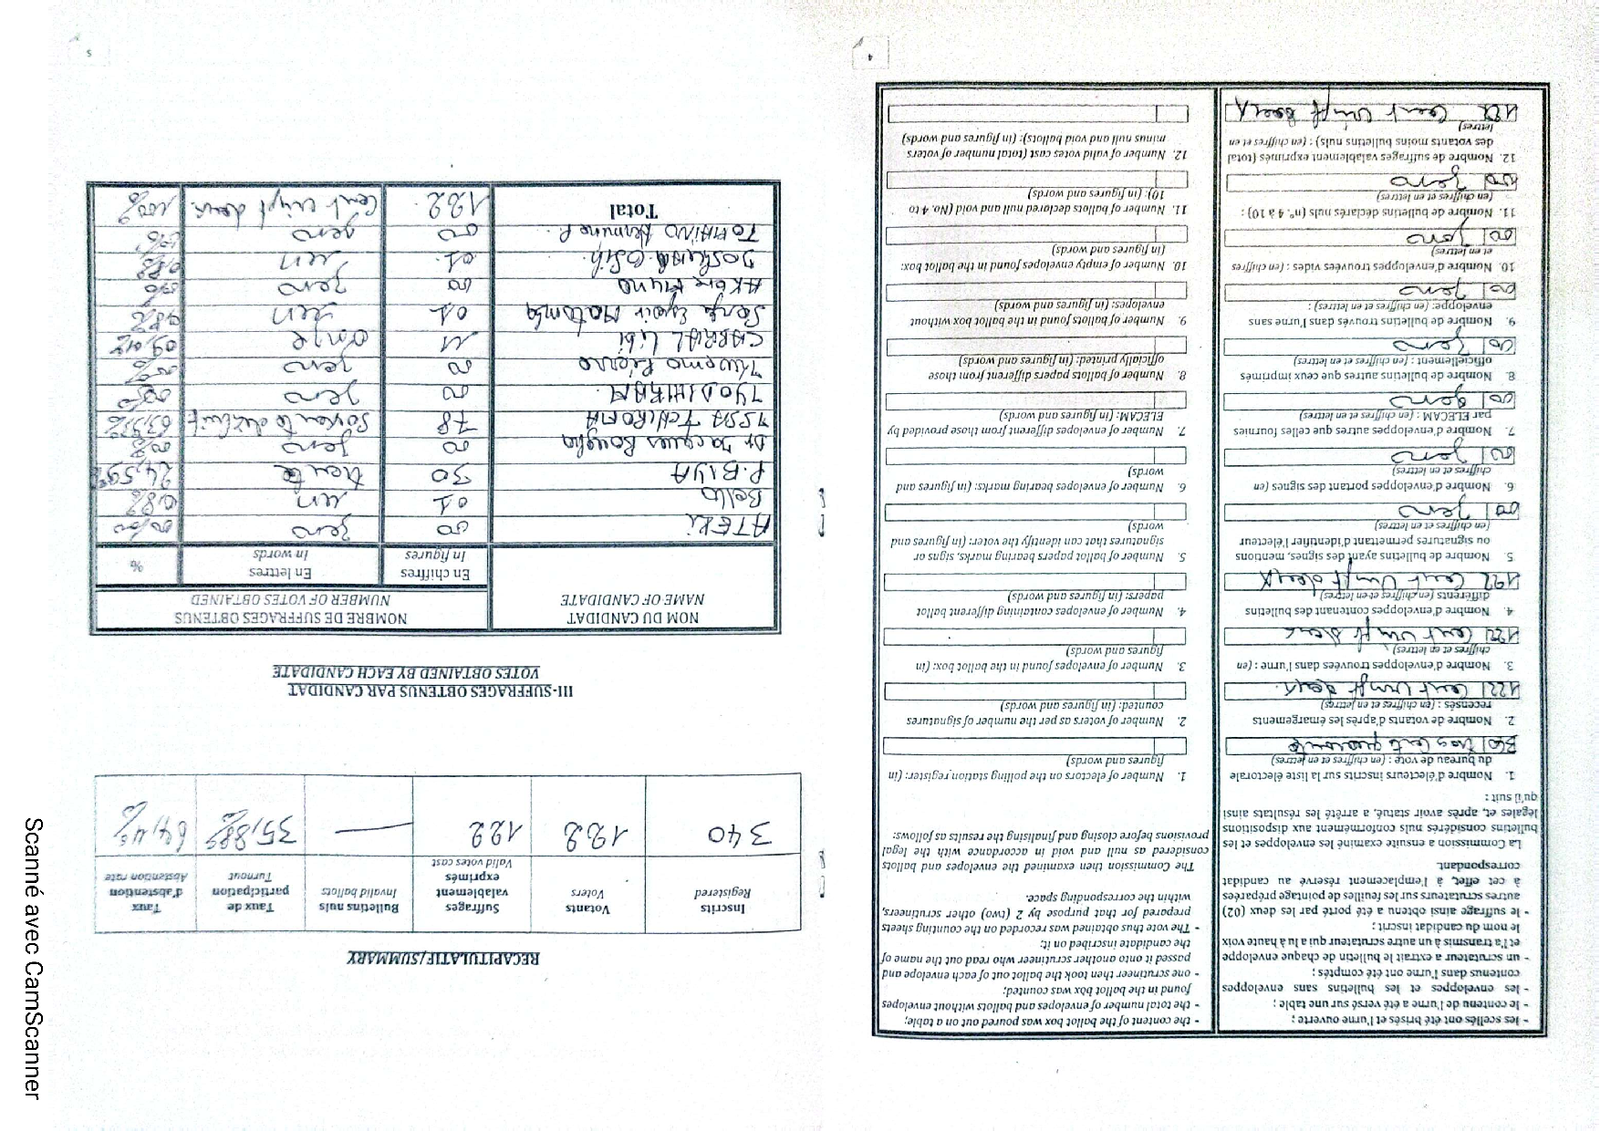 4
- les scellés ont été brisés et l'urne ouverte ;
- le contenu de l'urne a été versé sur une table ;
- les enveloppes et les bulletins sans enveloppes
contenus dans l'urne ont été comptés ;
- un scrutateur a extrait le bulletin de chaque enveloppe
et l'a transmis à un autre scrutateur qui a lu à haute voix
le nom du candidat inscrit ;
- le suffrage ainsi obtenu a été porté par les deux (02)
autres scrutateurs sur les feuilles de pointage préparées
à cet effet, à l'emplacement réservé au candidat
correspondant.
La Commission a ensuite examiné les enveloppes et les
bulletins considérés nuls conformement aux dispositions
légales et, après avoir statué, a arrêté les résultats ainsi
qu'il suit :
1. Nombre d'électeurs inscrits sur la liste électorale
du bureau de vote : (en chiffres et en lettres)
340 trois cent quarante
2. Nombre de votants d'après les émargements
recensés : (en chiffres et en lettres)
122 Cent vingt deux
3. Nombre d'enveloppes trouvées dans l'urne : (en
chiffres et en lettres)
122 Cent vingt deux
4. Nombre d'enveloppes contenant des bulletins
différents (en chiffres et en lettres)
122 Cent vingt deux
5. Nombre de bulletins ayant des signes, mentions
ou signatures permettant d'identifier l'électeur
(en chiffres et en lettres)
00 zero
6. Nombre d'enveloppes portant des signes (en
chiffres et en lettres)
00 zero
7. Nombre d'enveloppes autres que celles fournies
par ELECAM : (en chiffres et en lettres)
00 zero
8. Nombre de bulletins autres que ceux imprimés
officiellement : (en chiffres et en lettres)
00 zero
9. Nombre de bulletins trouvés dans l'urne sans
enveloppe: (en chiffres et en lettres) :
00 zero
10. Nombre d'enveloppes trouvées vides : (en chiffres
et en lettres)
00 zero
11. Nombre de bulletins déclarés nuls (n° 4 à 10) :
(en chiffres et en lettres)
00 zero
12. Nombre de suffrages valablement exprimés (total
des votants moins bulletins nuls) : (en chiffres et en
lettres)
122 Cent vingt deux
- the content of the ballot box was poured out on a table;
- the total number of envelopes and ballots without envelopes
found in the ballot box was counted;
- one scrutineer then took the ballot out of each envelope and
passed it onto another scrutineer who read out the name of
the candidate inscribed on it;
- The vote thus obtained was recorded on the counting sheets
prepared for that purpose by 2 (two) other scrutineers,
within the corresponding space.
The Commission then examined the envelopes and ballots
considered as null and void in accordance with the legal
provisions before closing and finalising the results as follows:
1. Number of electors on the polling station register: (in
figures and words)
2. Number of voters as per the number of signatures
counted: (in figures and words)
3. Number of envelopes found in the ballot box: (in
figures and words)
4. Number of envelopes containing different ballot
papers: (in figures and words)
5. Number of ballot papers bearing marks, signs or
signatures that can identify the voter: (in figures and
words)
6. Number of envelopes bearing marks: (in figures and
words)
7. Number of envelopes different from those provided by
ELECAM: (in figures and words)
8. Number of ballots papers different from those
officially printed: (in figures and words)
9. Number of ballots found in the ballot box without
envelopes: (in figures and words)
10. Number of empty envelopes found in the ballot box:
(in figures and words)
11. Number of ballots declared null and void (No. 4 to
10): (in figures and words)
12. Number of valid votes cast (total number of voters
minus null and void ballots): (in figures and words)
5
RECAPITULATIF/SUMMARY
Inscrits Registered | Votants Voters | Suffrages valablement exprimés Valid votes cast | Bulletins nuls Invalid ballots | Taux de participation Turnout | Taux d'abstention Abstention rate
340 | 122 | 122 | — | 35,88% | 64,4%
III-SUFFRAGES OBTENUS PAR CANDIDAT
VOTES OBTAINED BY EACH CANDIDATE
NOM DU CANDIDAT NAME OF CANDIDATE | NOMBRE DE SUFFRAGES OBTENUS NUMBER OF VOTES OBTAINED
En chiffres In figures | En lettres In words | %
ATEKI 00 zero
Bello 01 un
P. BIYA 30 trente 24,59%
Dr Jacques Bougha 00 zero
ISSA TCHIROMA 78 soixante dix huit
IYODI HIRAM 00 zero
Kwemo Pierre 00 zero
CABRAL Libi 11 onze
Serge Espoir Matomba 01 un
AKERE MUNA 00 zero
JOSHUA OSIH 01 un
TOMAINO Hermine P. 00 zero
Total 122 Cent vingt deux 100%
Scanné avec CamScanner